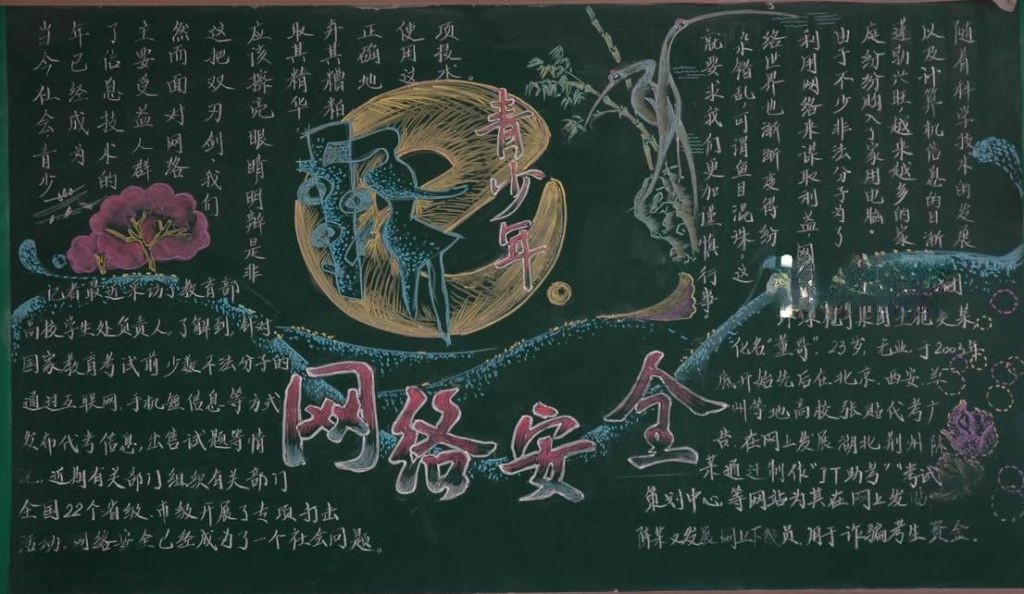 当今社会青少
年已经成为
了信息技术的
主要受益人群
然而面对网络
这把双刃剑,我们
应该擦亮眼睛明辨是非
取其精华
弃其糟粕
正确地
使用这
项技术。
青少年
随着科学技术的发展
以及计算机信息的日渐
蓬勃兴旺,越来越多的家
庭纷纷购入了家用电脑。
由于不少非法分子为了
利用网络来谋取利益,网
络世界也渐渐变得纷
杂错乱,可谓鱼目混珠,这
就要求我们更加谨慎行事
网络安全
记者最近采访了教育部
高校学生处负责人,了解到,针对
国家教育考试前少数不法分子的
通过互联网、手机短信息等方式
发布代考信息,出售试题等情
近期有关部门组织有关部门
全国22个省级、市级开展了专项打击
活动。网络安全已经成为了一个社会问题。
某
化名"董哥",23岁,无业,于2003年
底开始先后在北京、西安、兰
州等地高校张贴代考广
告,在网上发展湖北荆州陈
某通过制作"JT助考""考试
策划中心等网站为其在网上发
陈某又发展网上下线员,用于诈骗考生资金。